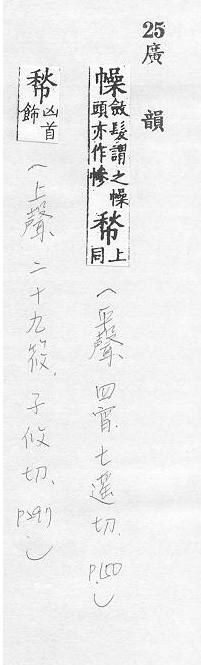 25廣韻
幧 斂髮謂之幧頭亦作幓 上同（平聲、四宵、七遙切、P.150）
凶首飾（上聲、二十九篠、子攸切、P.297）